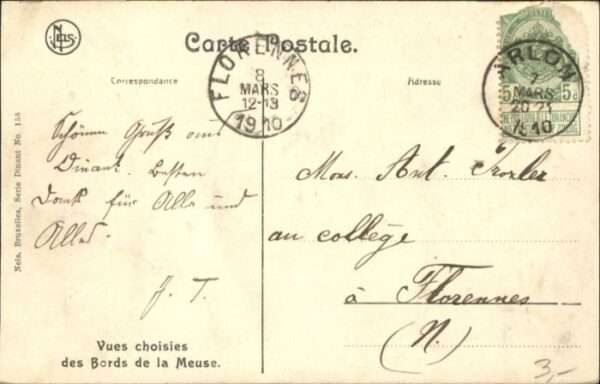 Nels
Carte Postale.
Correspondance
Adresse
FLORENNES
8
MARS
12-13
1910
ARLON
7
MARS
20-21
1910
5c
Schönen Gruß aus
Dinant. Besten
Dank für Alle und
Alles.
J. T.
Mons. Ant.
au collège
à Florennes
(N.)
Vues choisies
des Bords de la Meuse.
Nels, Bruxelles, Serie Dinant No. 158
3,-